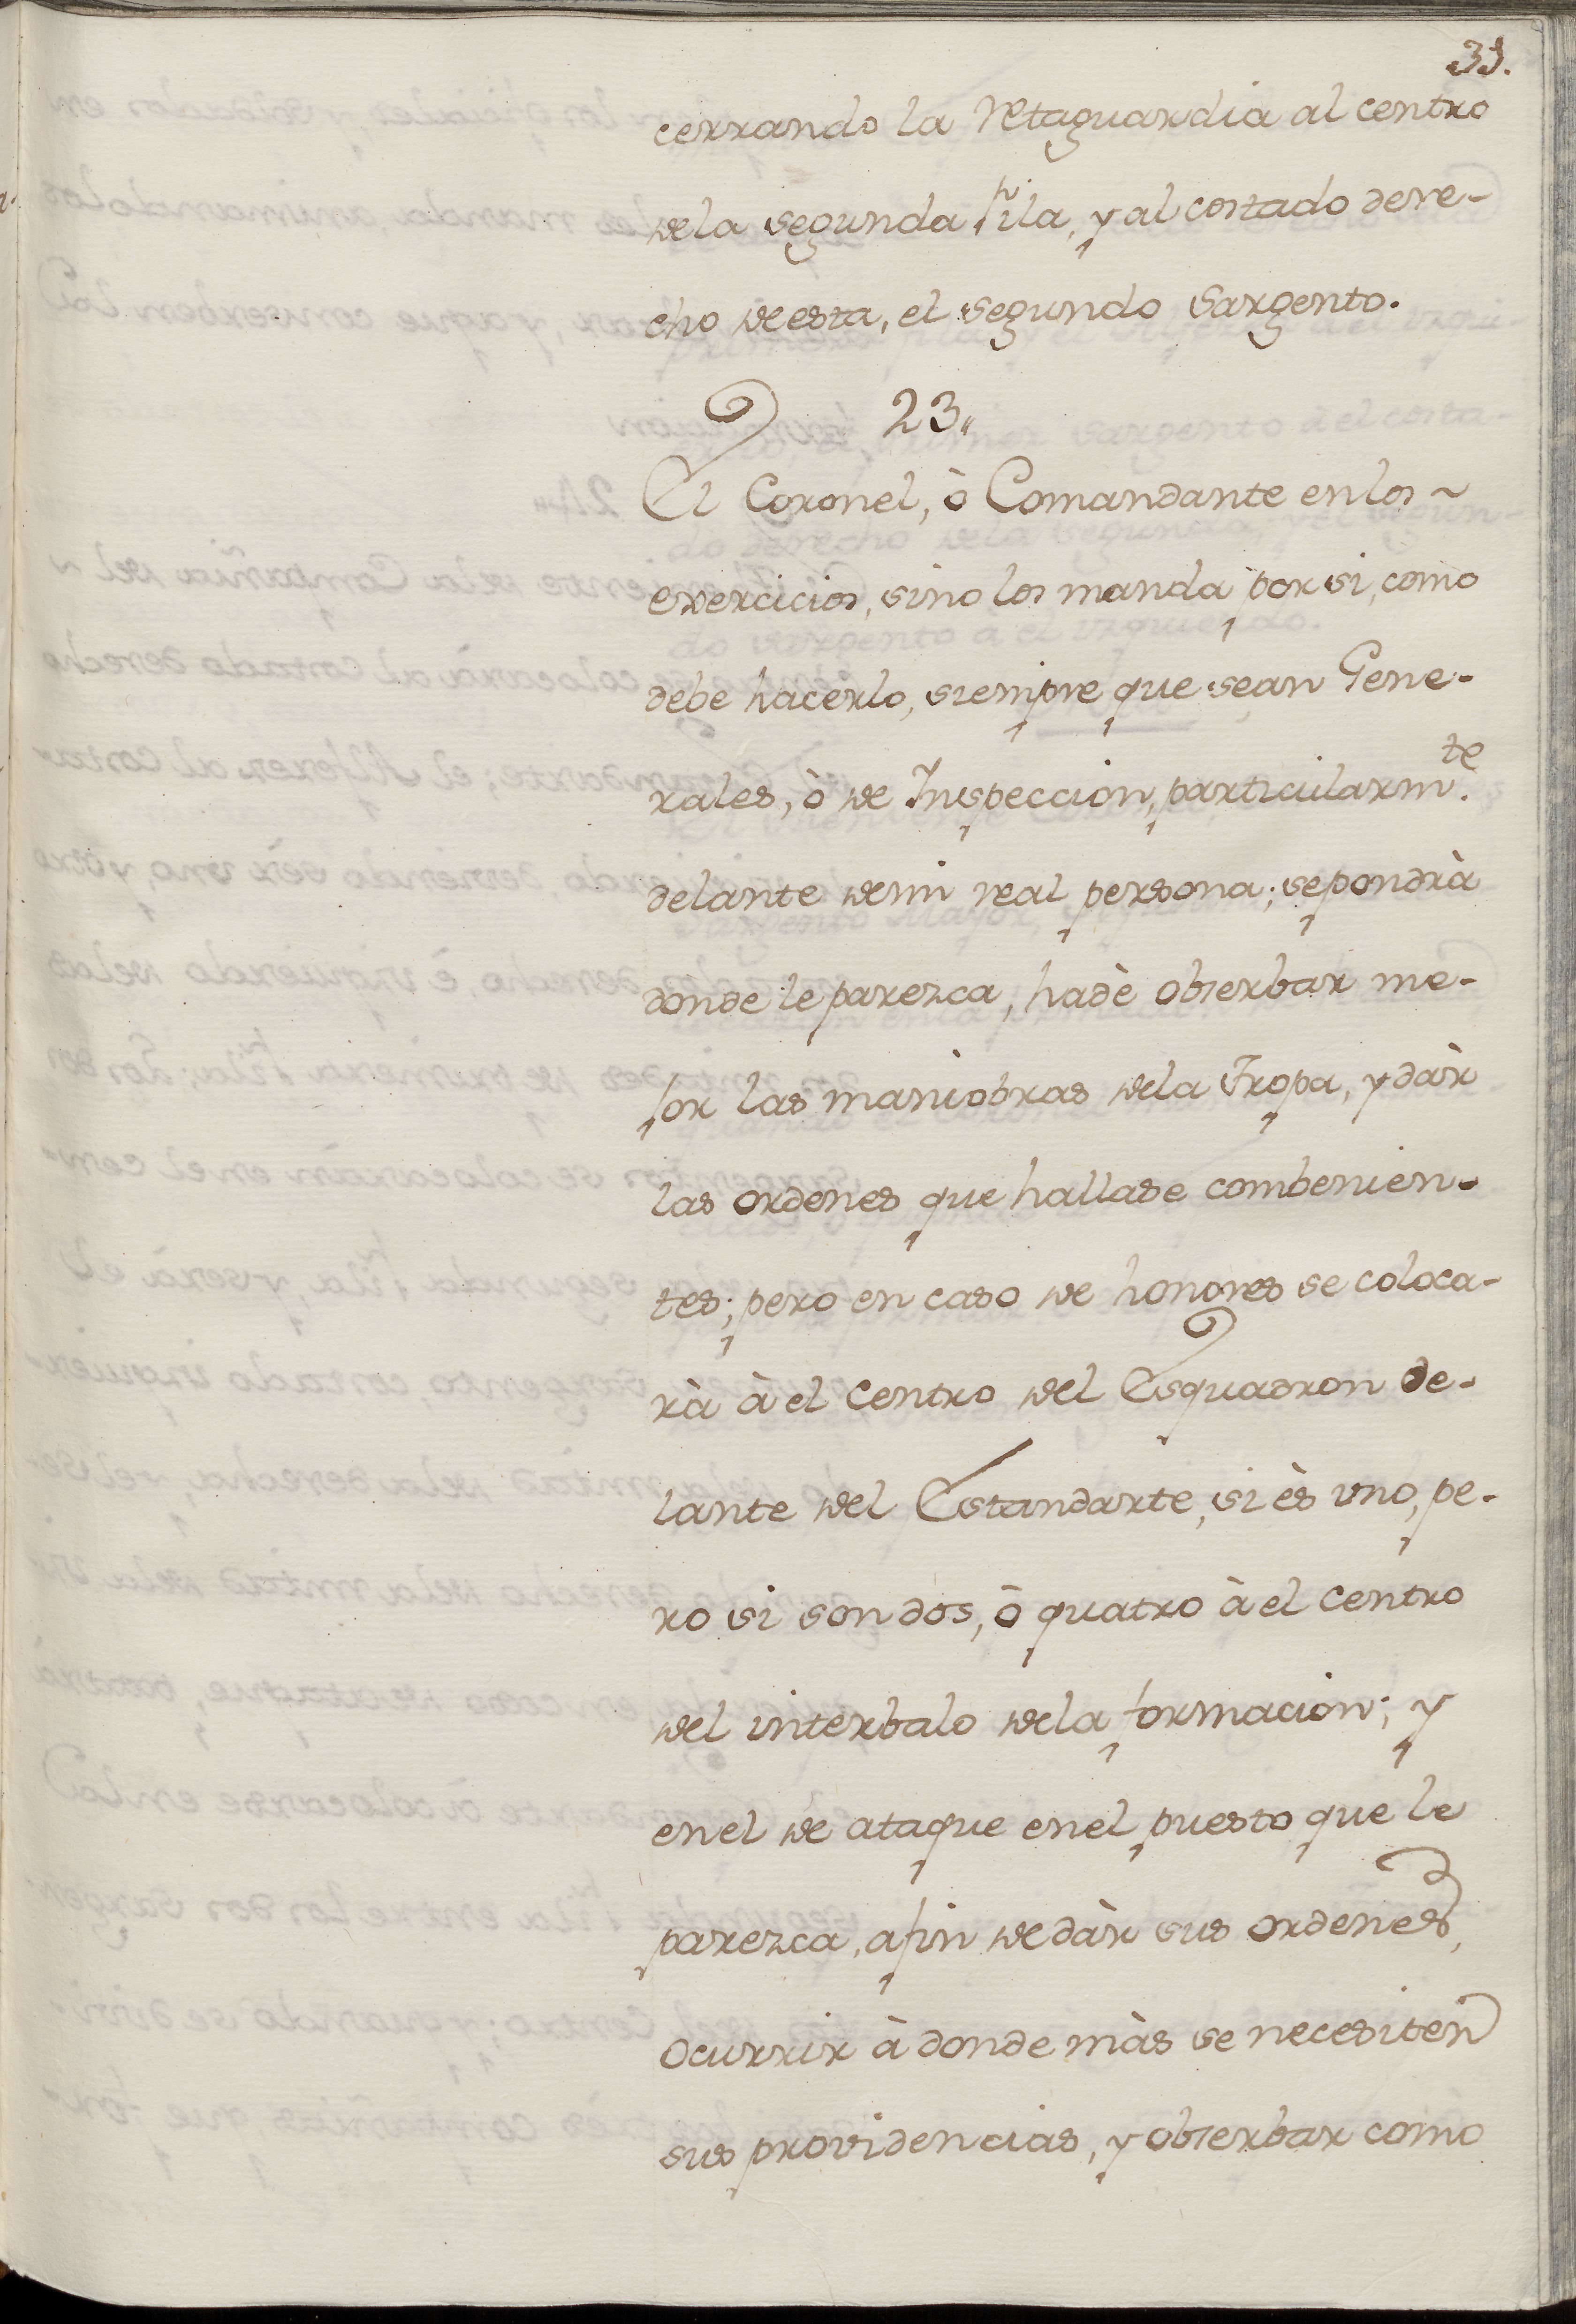 39.
cerrando la Retaguardia al centro
dela segunda fila, y al costado dere-
cho de esta, el segundo Sargento.
23,,
El Coronel, ò Comandante en los ~
exercicios, sino los manda por si, como
debe hacerlo, siempre que sean Gene-
rales, ò de Inspeccion, particularm.te
delante de mi real persona; se pondrà
donde le parezca, hadè obserbar me-
jor las maniobras dela Tropa, y dàr
las ordenes que hallase combenien-
tes; pero en caso de honores se coloca-
rà à el Centro del Esquadron de-
lante del Estandarte, si ès uno, pe-
ro si son dos, ò quatro à el Centro
del interbalo dela formacion; y
en el de ataque en el puesto que le
parezca, afin de dàr sus ordenes,
ocurrir à donde màs se necesiten
sus providencias, y obserbar como